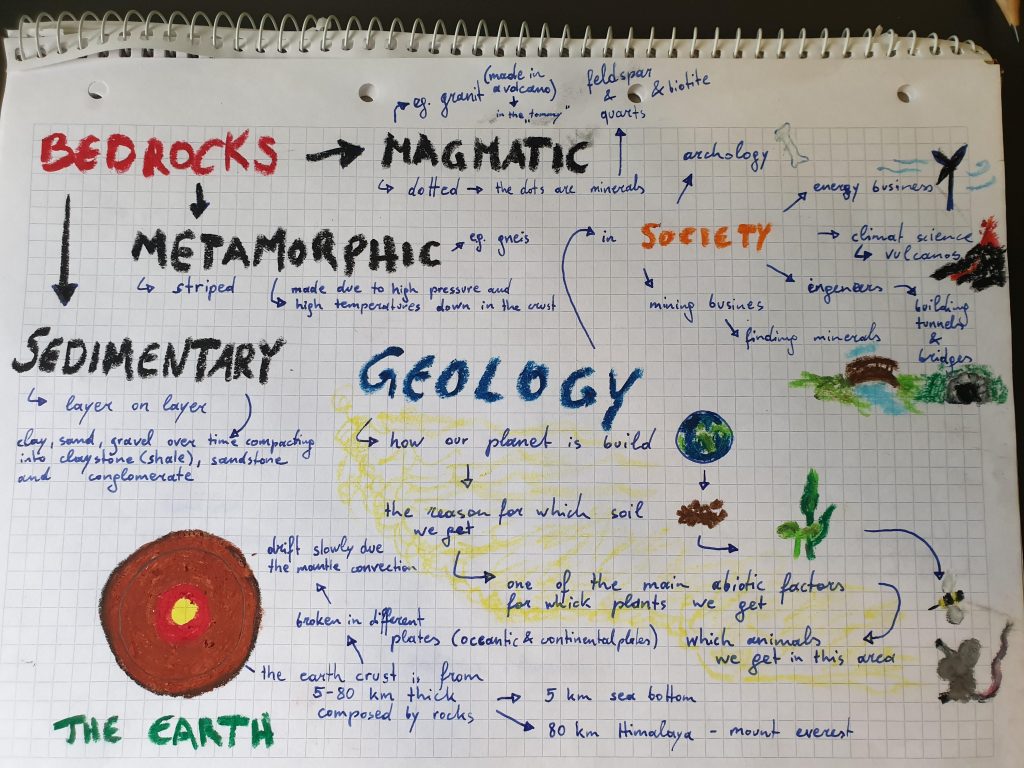 BEDROCKS
MAGMATIC
eg. granit
(made in
a volcano)
in the "tommy"
feldspar
&
quarts
& biotite
dotted → the dots are minerals
METAMORPHIC
eg. gneis
striped
made due to high pressure and
high temperatures down in the crust
SEDIMENTARY
layer on layer
clay, sand, gravel over time compacting
into claystone (shale), sandstone
and conglomerate
in SOCIETY
archology
energy business
climat science
vulcanos
engeneers
building
tunnels
&
bridges
mining busines
finding minerals
GEOLOGY
how our planet is build
the reason for which soil
we get
one of the main abiotic factors
for which plants we get
which animals
we get in this area
THE EARTH
the earth crust is from
5-80 km thick
composed by rocks
5 km sea bottom
80 km Himalaya - mount everest
broken in different
plates (oceantic & continental plates)
drift slowly due
the mantle convection